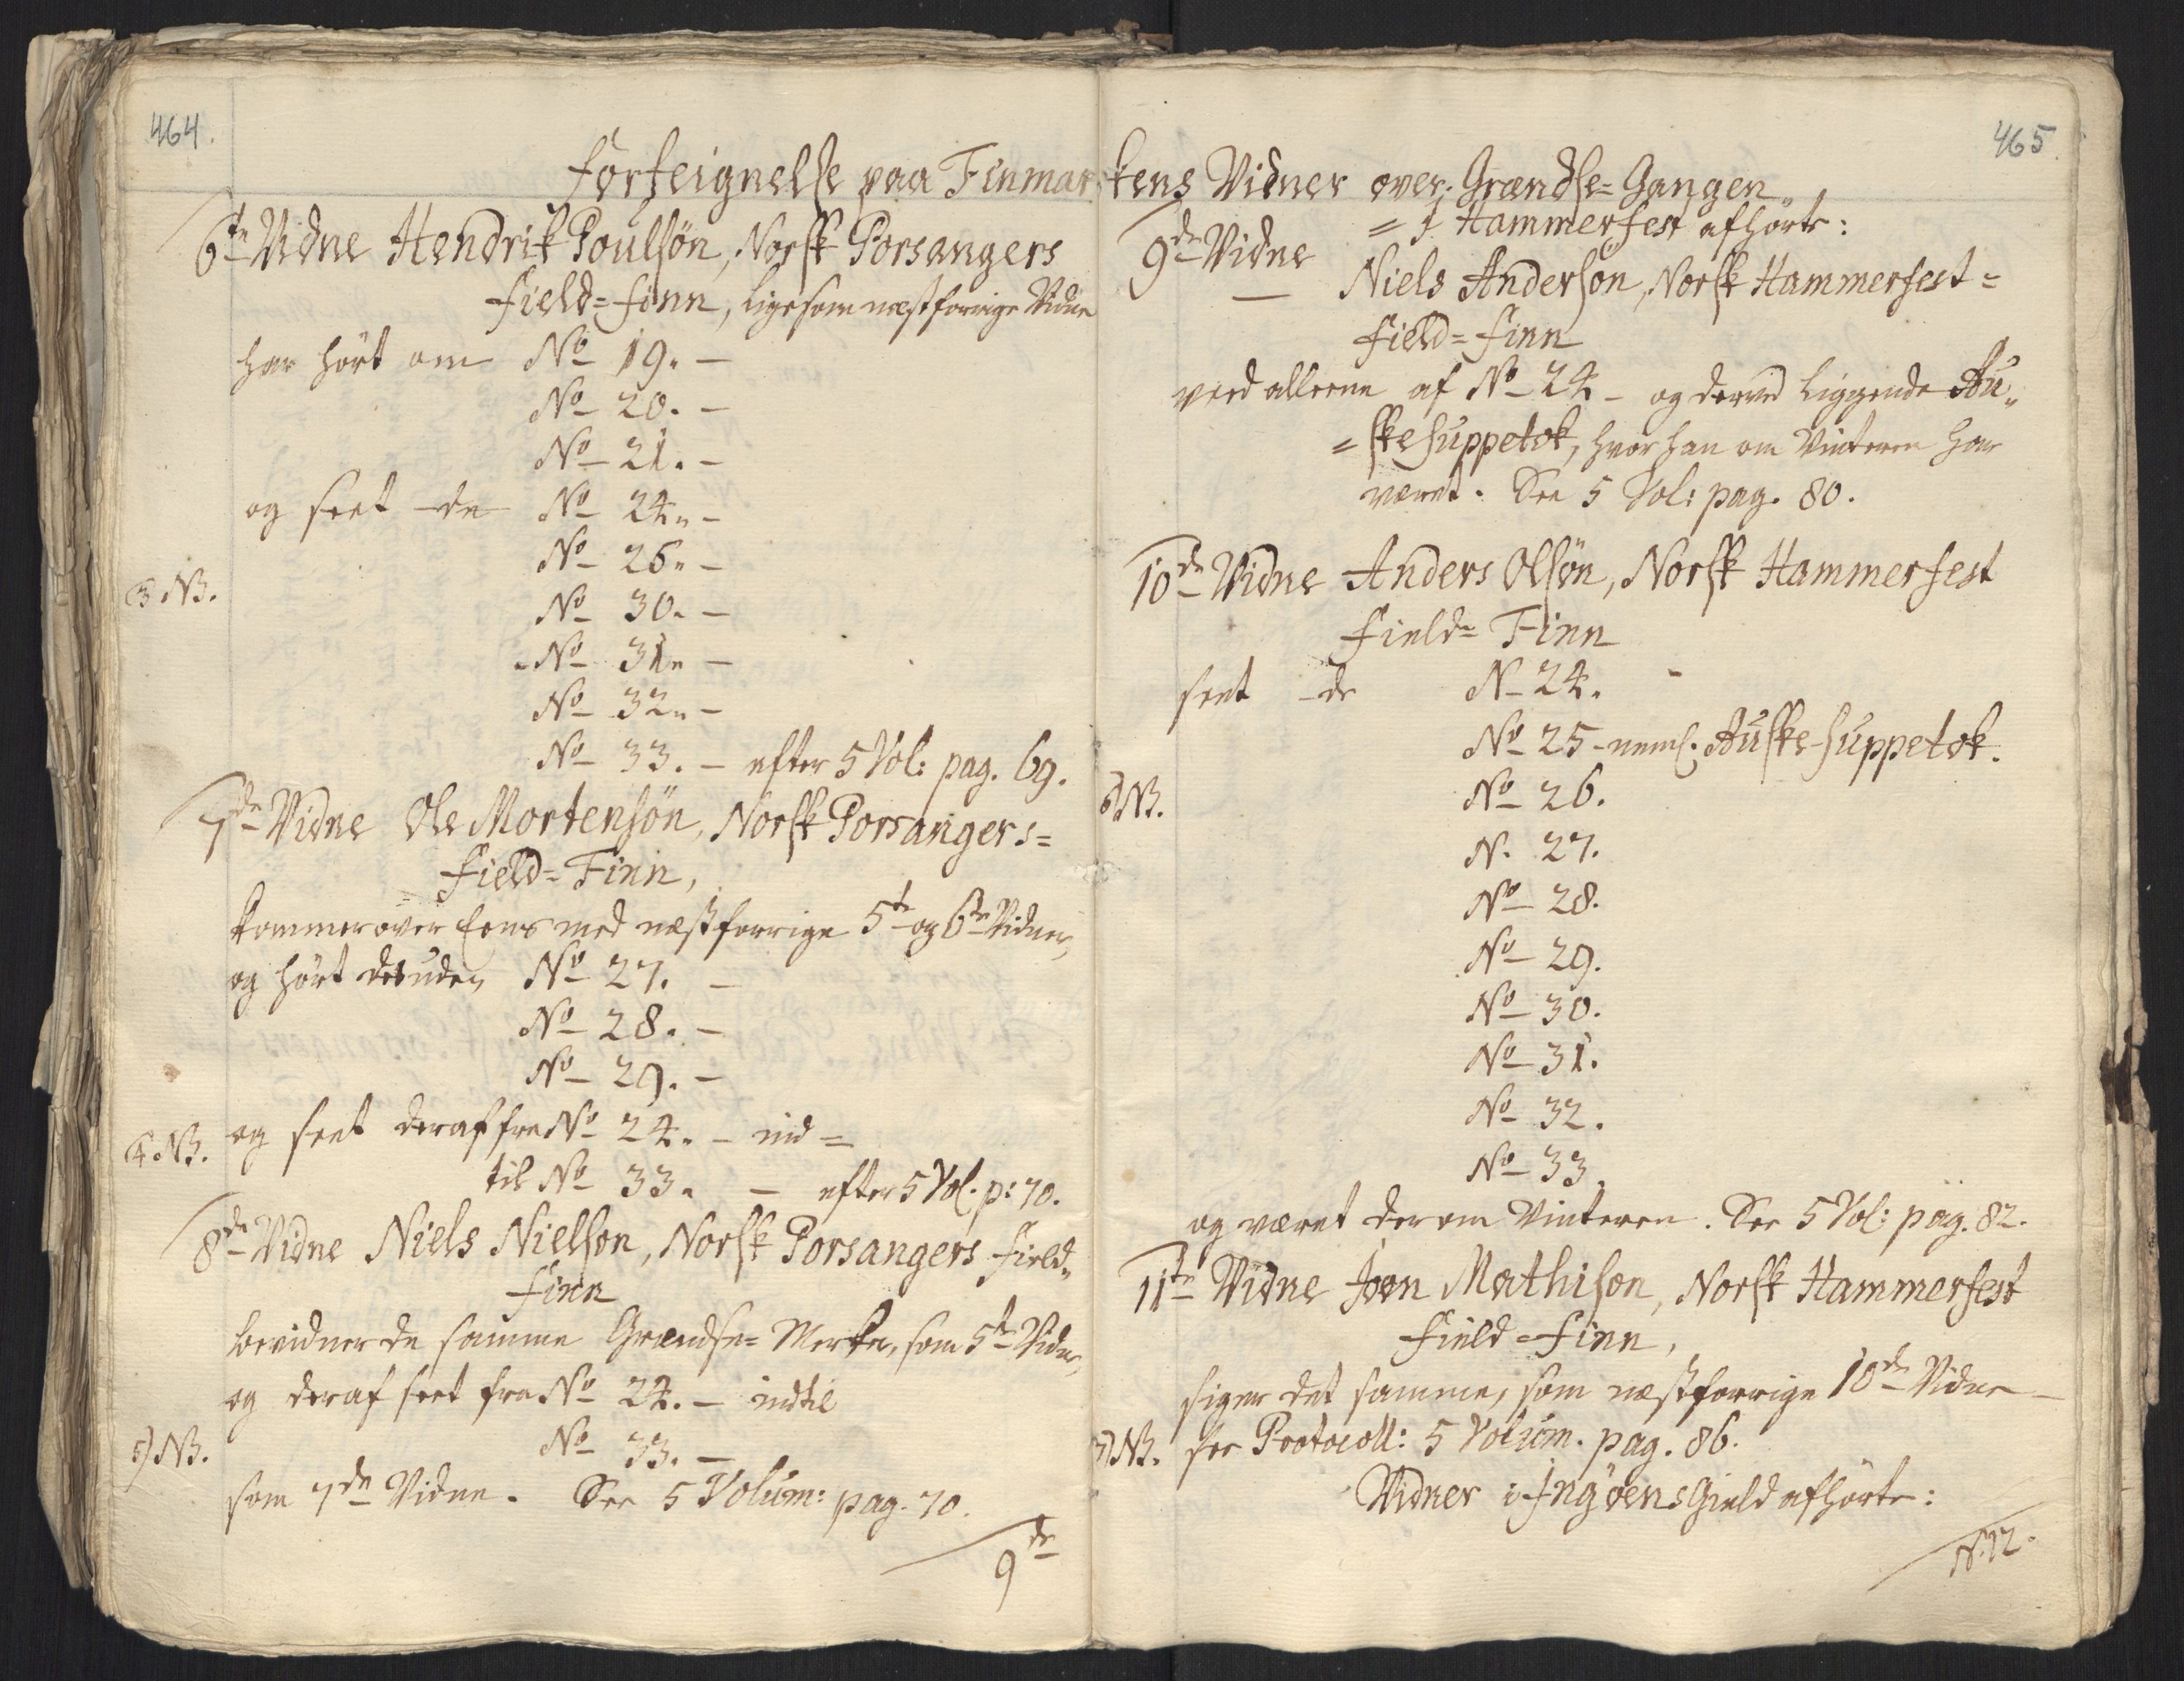 464.
Forteignelse paa Finmar
6te Vidne Hendrik Poulsøn, Norsk Porsangers
Field=Finn, ligesom næstforrige Vidne
har hørt om No 19. –
No 20. –
No 21. –
og seet de No 24. –
No 26. –
3 NB.
No 30. –
No 31. –
No 32. –
No 33. – efter 5 Vol: pag. 69.
7de Vidne Ole Mortensøn, Norsk Porsangers=
Field=Finn,
kommer over Eens med næstforrige 5te og 6te Vidner,
og hørt desuden No 27. –
No 28. –
No 29. –
4 NB. og seet deraf fra No 24. – ind=
til No 33. – efter 5 Vol. p: 70.
8de Vidne Niels Nielson, Norsk Porsangers Field=
Finn
bevidner de samme Grændse=Merker, som 5te Vidne,
og deraf seet fra No 24. – indtil
5) NB. No 33. –
som 7de Vidne. See 5 Volum: pag. 70.
9de
465.
kens Vidner over Grændse=Gangen
= i Hammerfest afhørte:
9de Vidne
Niels Anderson, Norsk Hammerfest=
Field=Finn
veed alleene af No 24 – og derved liggende Au=
=skesuppetok, hvor han om Vinteren har
været. See 5 Vol: pag. 80.
10de Vidne Anders Olsøn, Norsk Hammerfest
Field=Finn
seet de N 24.
No 25 – neml. Auske-suppetok.
6) NB. No 26.
N. 27.
No 28.
No 29.
No 30.
No 31.
No 32.
No 33.
og været der om Vinteren. See 5 Vol: pag. 82.
11te Vidne Joen Mathison, Norsk Hammerfest
Field=Finn,
siger det samme, som næstforrige 10de Vidne –
7) NB. see Protocoll: 5 Volum. pag. 86.
Vidner i Ingöens Gield afhørte:
N. 12.